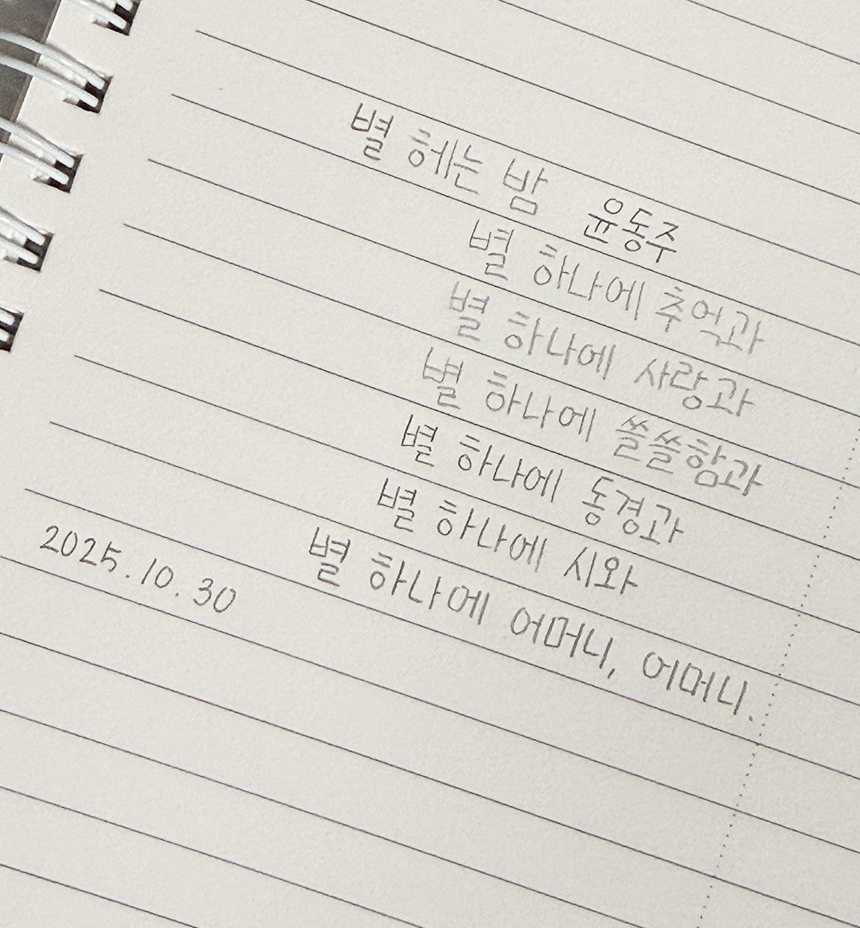 별 헤는 밤 윤동주
별 하나에 추억과
별 하나에 사랑과
별 하나에 쓸쓸함과
별 하나에 동경과
별 하나에 시와
별 하나에 어머니, 어머니.
2025.10.30